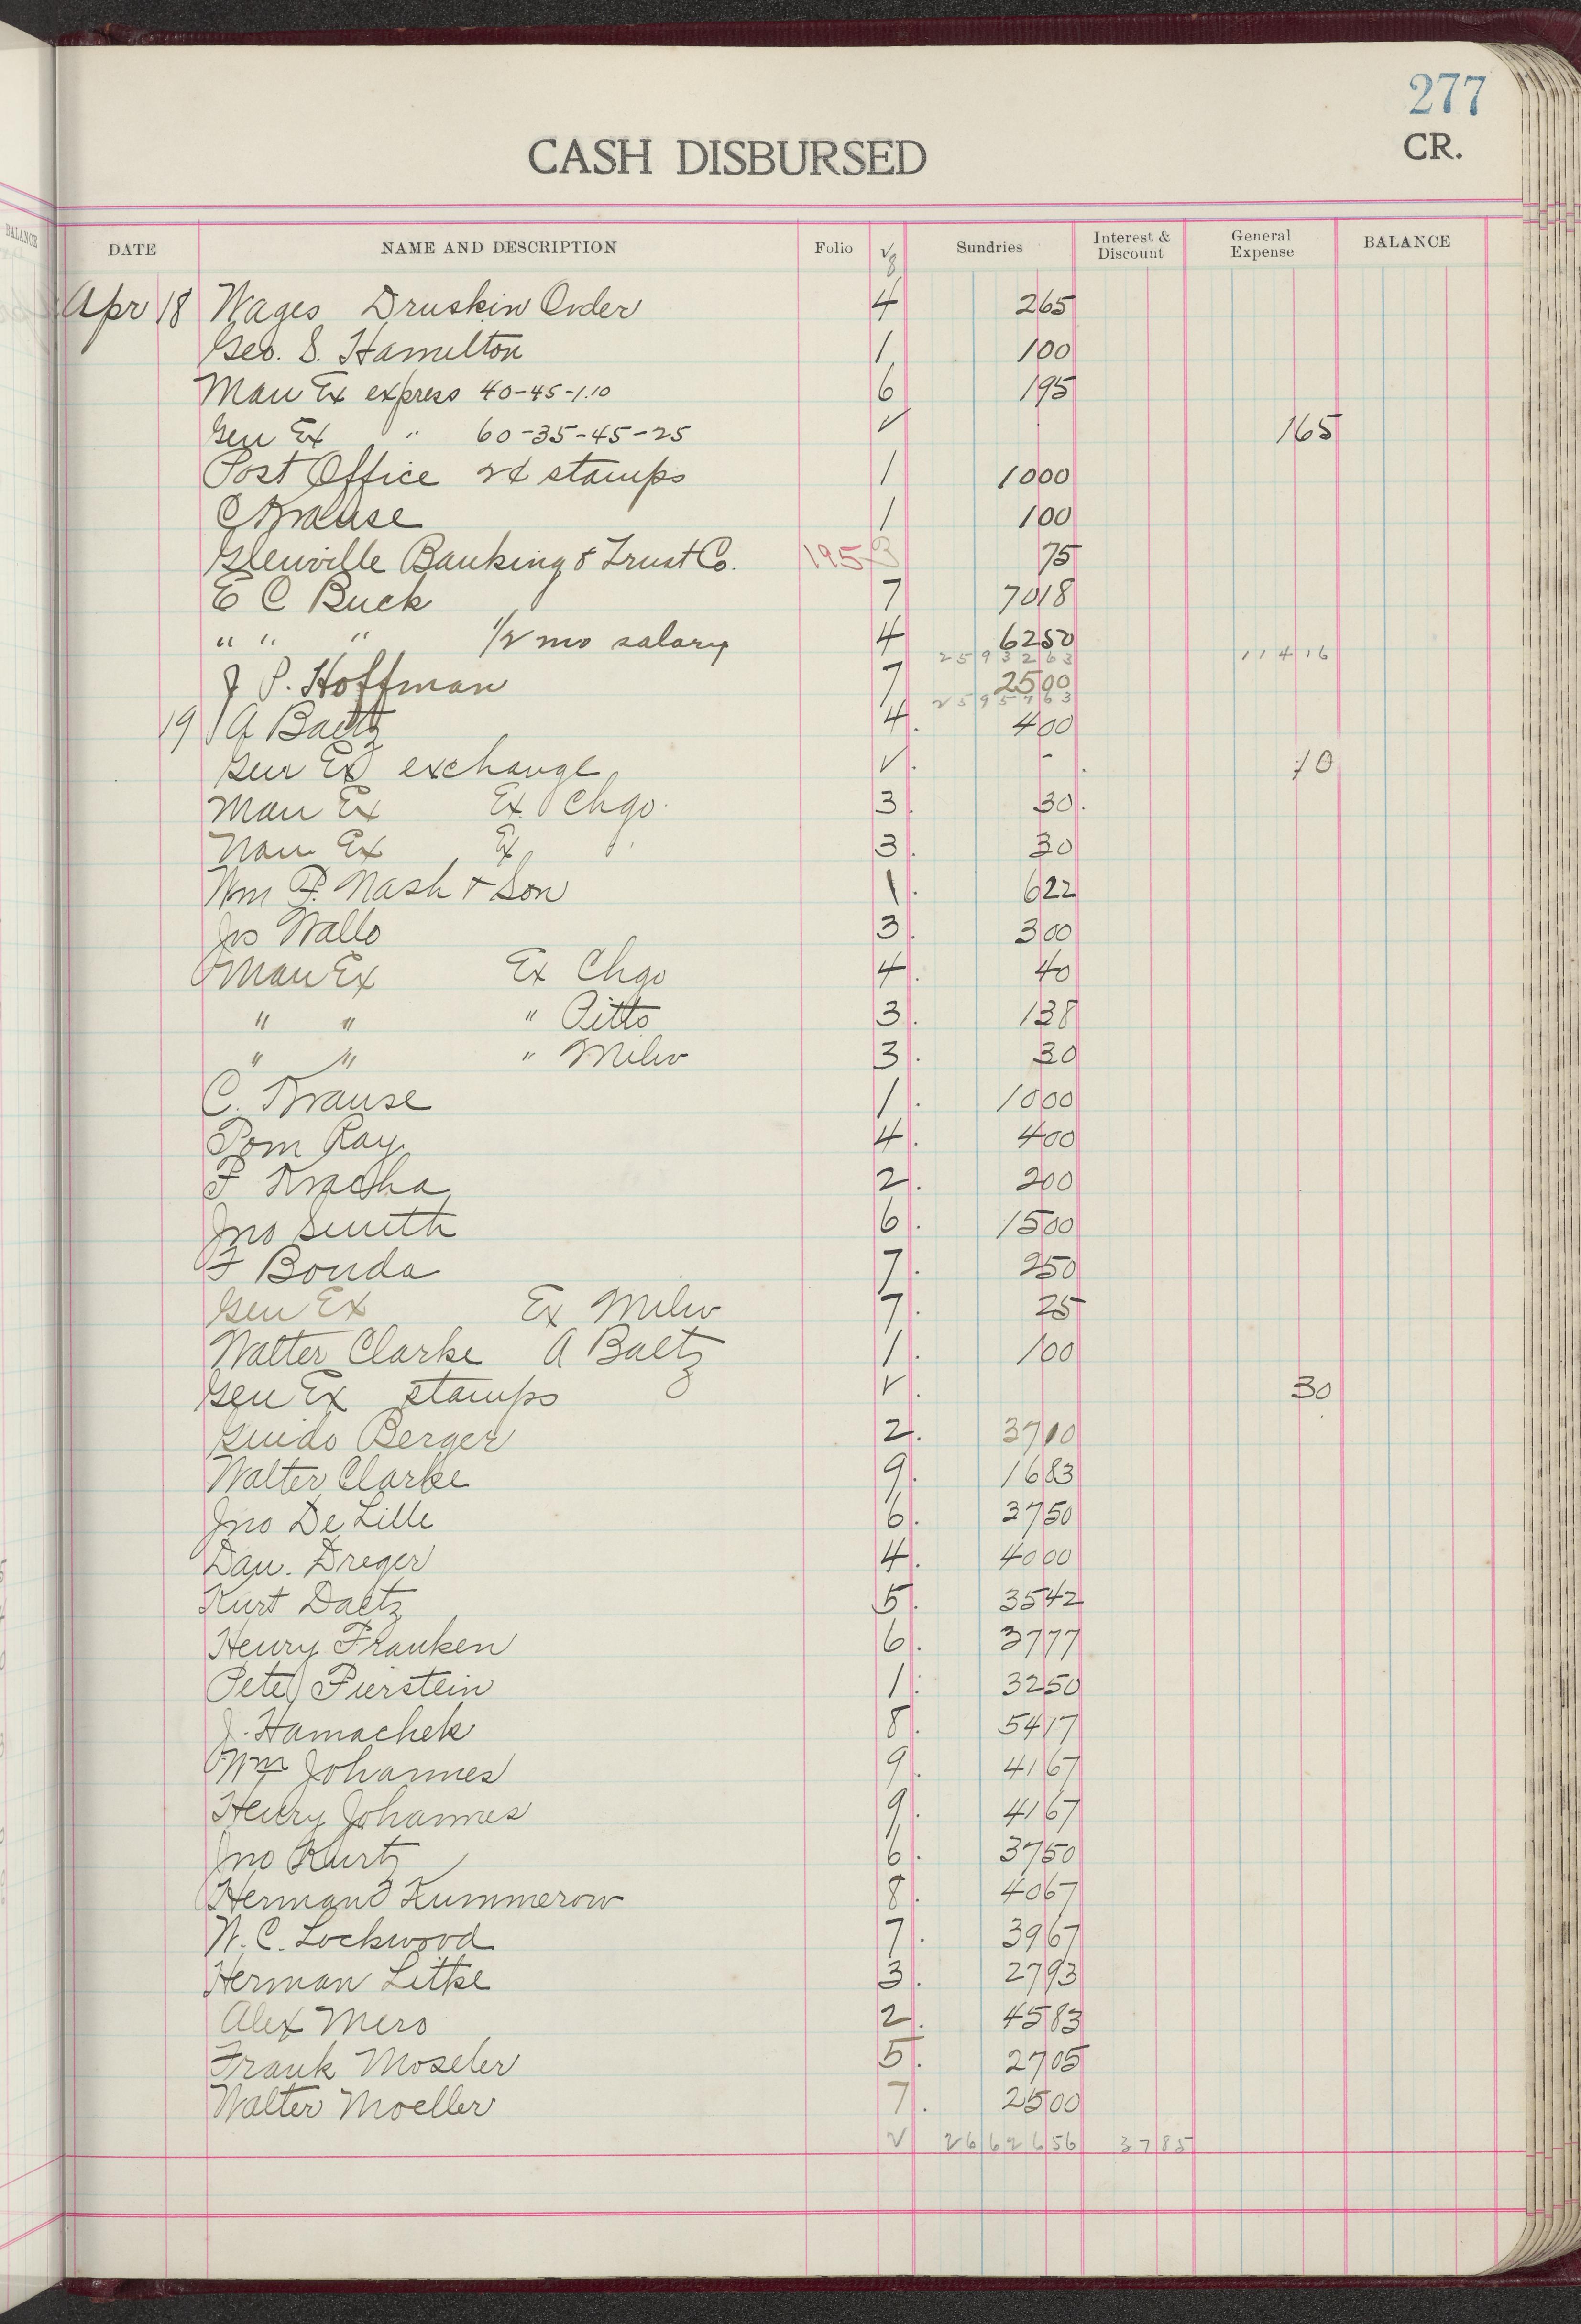 277
CASH DISBURSED CR.
BALANCE
DATE NAME AND DESCRIPTION Folio Sundries Interest & Discount General Expense BALANCE
Apr 18 Wages Druskin Order 4 265
Geo. S. Hamilton 1 100
Man Ex express 40-45-1.10 6 195
Gen Ex " 60-35-45-25 ✓ 165
Post Office 2¢ stamps 1 1000
C Krause 1 100
Glenville Banking & Trust Co. 195 3 75
E C Buck 7 7018
" " " 1/2 mo salary 4 6250
2593263 11416
J P. Hoffman 7 2500
2595763
19 A Baetz 4. 400
Gen Ex exchange ✓. - 10
Man Ex Ex Chgo. 3. 30.
Man Ex Ex 3. 30
Wm P. Nash & Son 1. 622
Jos Wallo 3. 300
Man Ex Ex Chgo 4. 40
" " " Pitts 3. 138
" " " Milw 3. 30
C. Krause 1. 1000
Pom Ray 4. 400
F Kracha 2. 200
Jno Smith 6. 1500
F Bonda 7. 250
Gen Ex Ex Milw 7. 25
Walter Clarke A Baetz 1. 100
Gen Ex stamps ✓. 30
Guido Berger 2. 3710
Walter Clarke 9. 1683
Jno De Lille 6. 3750
Dan. Dreger 4. 4000
Kurt Daetz 5. 3542
Henry Franken 6. 3777
Pete Fierstein 1. 3250
J. Hamachek 8. 5417
Wm Johannes 9. 4167
Henry Johannes 9. 4167
Jno Kurtz 6. 3750
Hermand Kummerow 8. 4067
W. C. Lockwood 7. 3967
Herman Litke 3. 2793
Alex Mero 2. 4583
Frank Moseler 5. 2705
Walter Moeller 7. 2500
✓ 2662656 3785